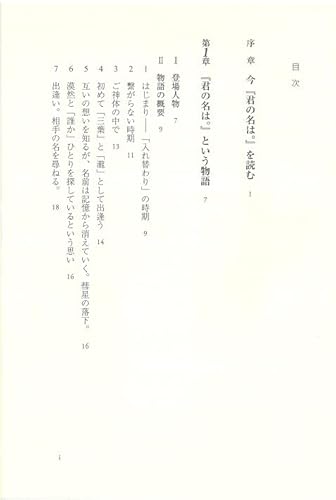 目次
序章 今『君の名は。』を読む 1
第1章 『君の名は。』という物語 7
Ⅰ 登場人物 7
Ⅱ 物語の概要 9
1 はじまり――「入れ替わり」の時期 9
2 繋がらない時期 11
3 ご神体の中で 13
4 初めて「三葉」と「瀧」として出逢う 14
5 互いの想いを知るが、名前は記憶から消えていく。彗星の落下。 16
6 漠然と「誰か」ひとりを探しているという思い 16
7 出逢い。相手の名を尋ねる。 18
i